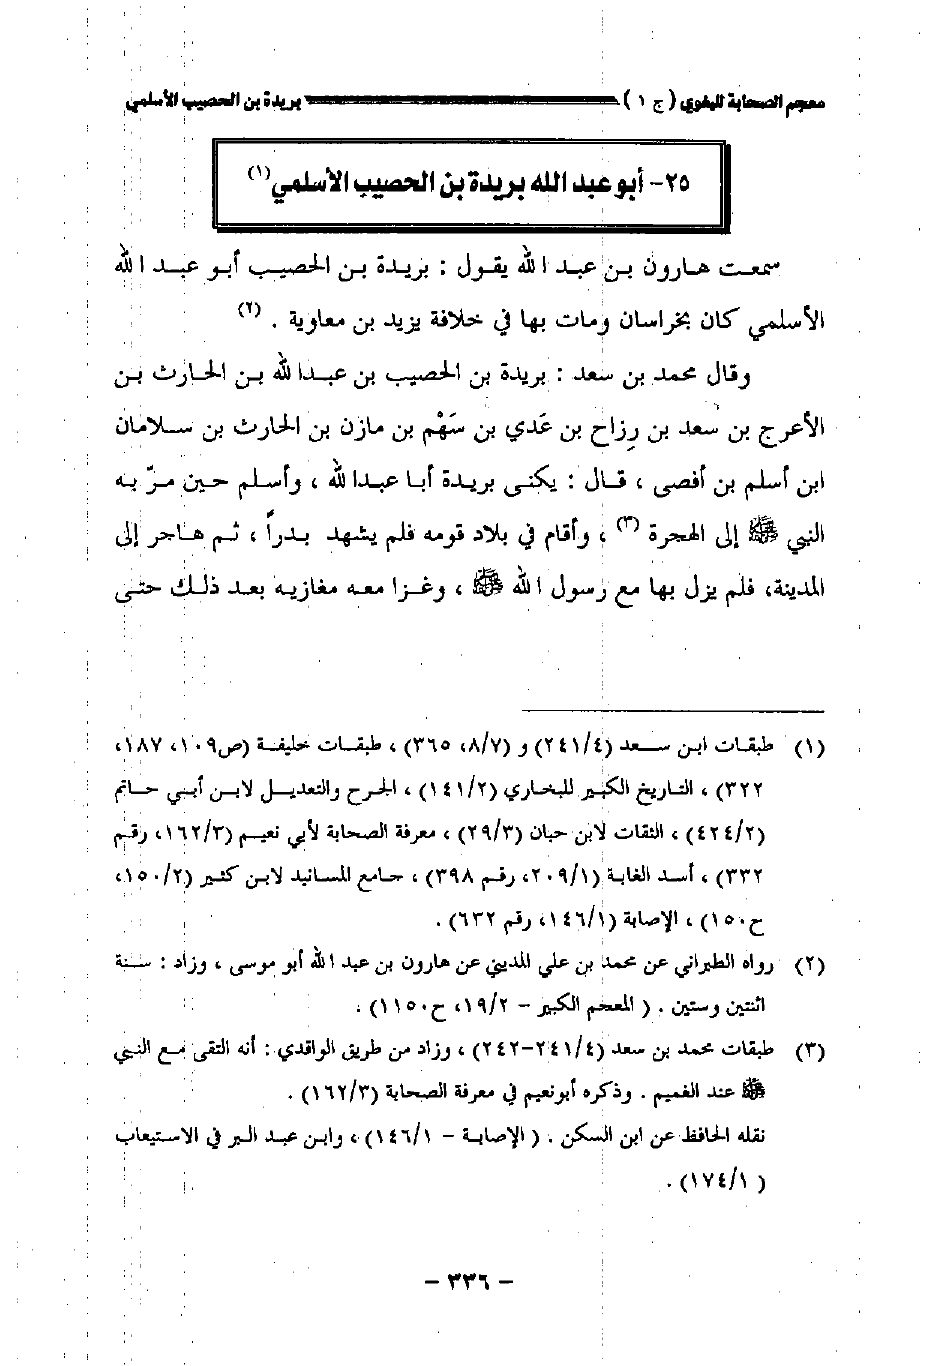 معجم الصحابة للبغوي ( ج ١ ) بريدة بن الحصيب الأسلمي
٢٥- أبو عبد الله بريدة بن الحصيب الأسلمي(١)
سمعت هارون بن عبد الله يقول : بريدة بن الحصيب أبو عبد الله
الأسلمي كان بخراسان ومات بها في خلافة يزيد بن معاوية . (٢)
وقال محمد بن سعد : بريدة بن الحصيب بن عبدالله بن الحارث بن
الأعرج بن سعد بن رِزاح بن عَدي بن سَهْم بن مازن بن الحارث بن سلامان
ابن أسلم بن أفصى ، قال : يكنى بريدة أبا عبدالله ، وأسلم حين مرّ به
النبي ﷺ إلى الهجرة (٣) ، وأقام في بلاد قومه فلم يشهد بدراً ، ثم هاجر إلى
المدينة، فلم يزل بها مع رسول الله ﷺ ، وغزا معه مغازيه بعد ذلك حتى
(١) طبقات ابن سعد (٢٤١/٤) و (٨/٧، ٣٦٥) ، طبقات خليفة (ص١٠٩، ١٨٧،
٣٢٢) ، التاريخ الكبير للبخاري (١٤١/٢) ، الجرح والتعديل لابن أبي حاتم
(٤٢٤/٢) ، الثقات لابن حبان (٢٩/٣) ، معرفة الصحابة لأبي نعيم (١٦٢/٣، رقم
٣٣٢) ، أسد الغابة (٢٠٩/١، رقم ٣٩٨) ، جامع المسانيد لابن كثير (١٥٠/٢،
ح١٥٠) ، الإصابة (١٤٦/١، رقم ٦٣٢) .
(٢) رواه الطبراني عن محمد بن علي المديني عن هارون بن عبد الله أبو موسى ، وزاد : سنة
اثنتين وستين . ( المعجم الكبير - ١٩/٢، ح١١٥٠) .
(٣) طبقات محمد بن سعد (٢٤١/٤-٢٤٢) ، وزاد من طريق الواقدي : أنه التقى مع النبي
ﷺ عند الغميم . وذكره أبونعيم في معرفة الصحابة (١٦٢/٣) .
نقله الحافظ عن ابن السكن . ( الإصابة - ١٤٦/١) ، وابن عبد البر في الاستيعاب
( ١٧٤/١) .
- ٣٣٦ -